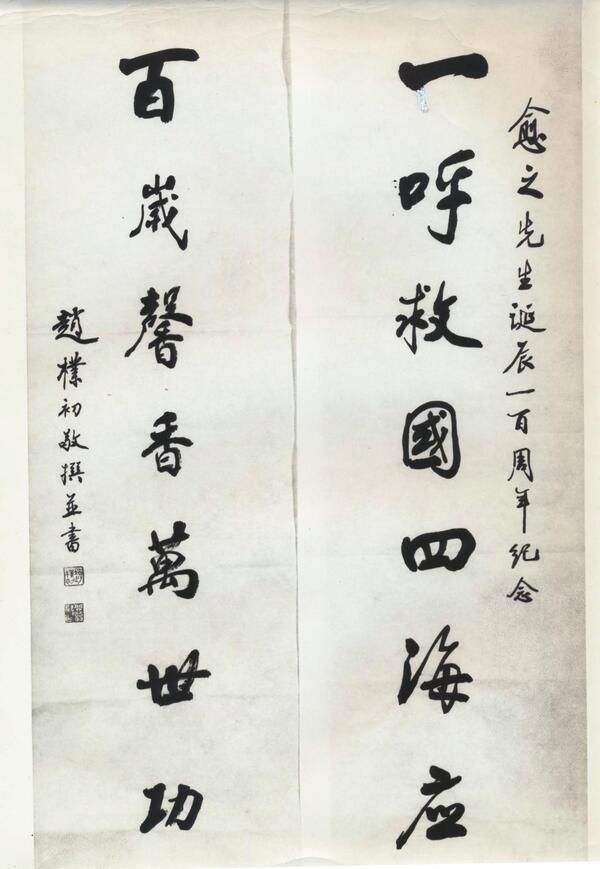 愈之先生誕辰一百周年纪念
一呼救國四海应
百嵗馨香萬世功
趙樸初敬撰並書